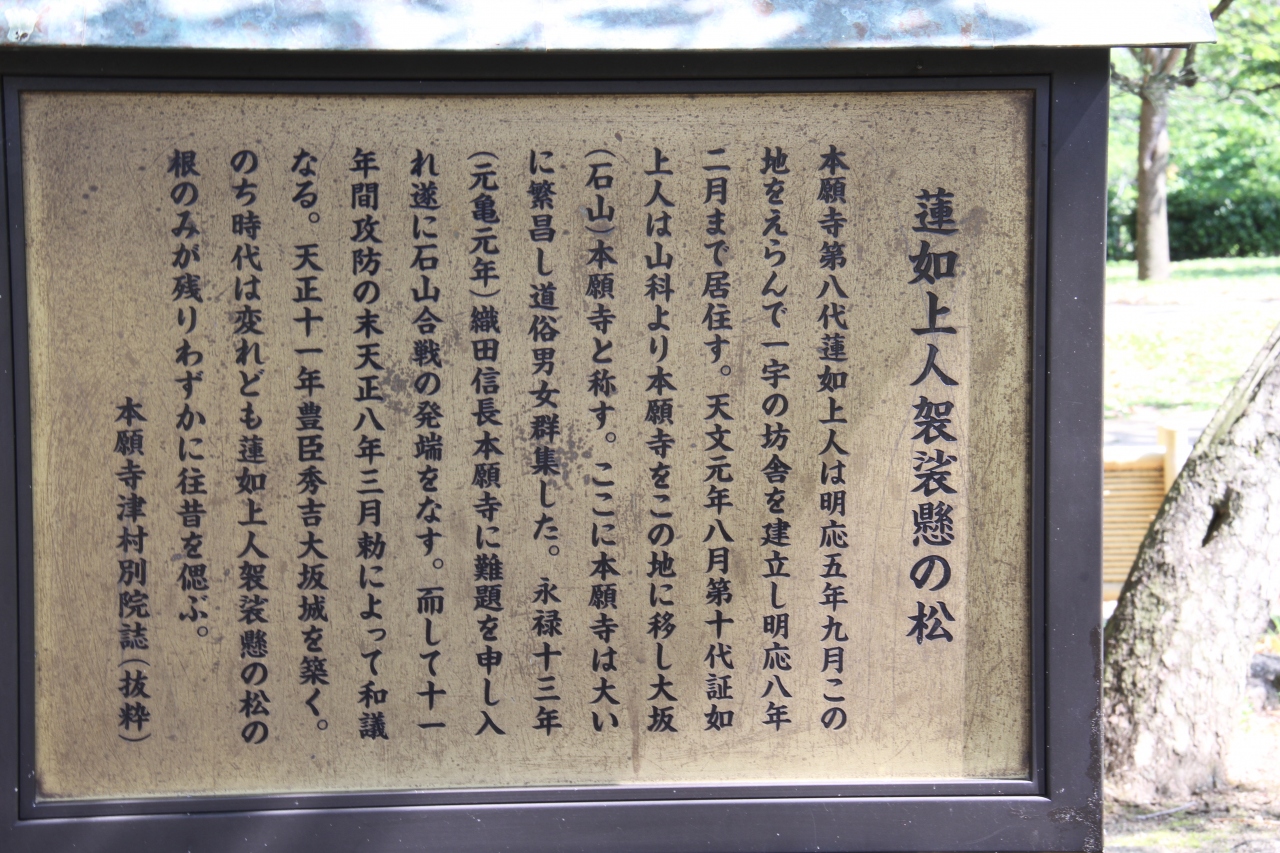 蓮如上人袈裟懸の松
本願寺第八代蓮如上人は明応五年九月この
地をえらんで一宇の坊舎を建立し明応八年
二月まで居住す。天文元年八月第十代証如
上人は山科より本願寺をこの地に移し大坂
(石山)本願寺と称す。ここに本願寺は大い
に繁昌し道俗男女群集した。永禄十三年
(元亀元年)織田信長本願寺に難題を申し入
れ遂に石山合戦の発端をなす。而して十一
年間攻防の末天正八年三月勅によって和議
なる。天正十一年豊臣秀吉大坂城を築く。
のち時代は変れども蓮如上人袈裟懸の松の
根のみが残りわずかに往昔を偲ぶ。
本願寺津村別院誌(抜粋)